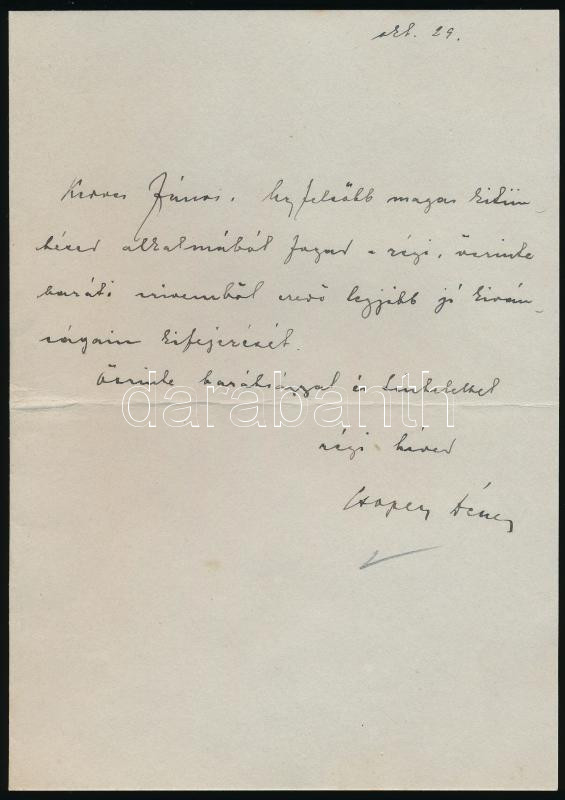 okt. 29.
Kedves János! Legfelsőbb magas kitün-
tésed alkalmából fogad a régi, őszinte
baráti szivemből eredő legjobb jó kiván-
ságaim kifejezését.
Őszinte barátsággal és tisztelettel
darabanth
régi híved
Csopey Dénes